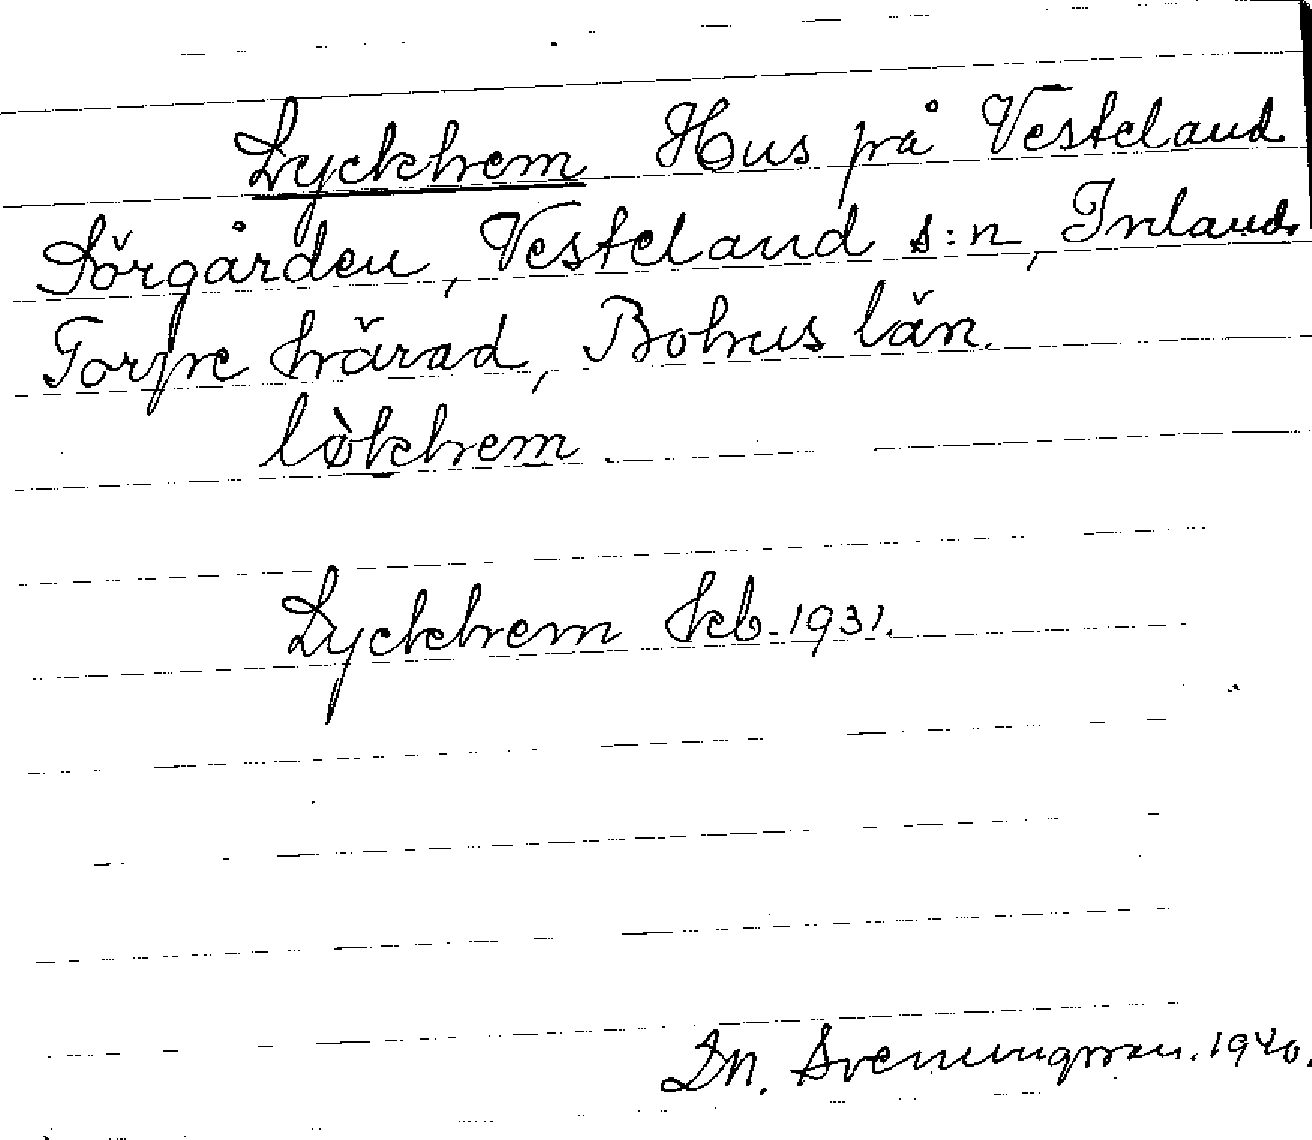 Lyckhem Hus på Vesteland
Sörgården, Vesteland s:n, Inlands
Torpe härad, Bohus län.
lòkhem
Lyckhem Jeb. 1931.
Dn. Sveningsson. 1940.